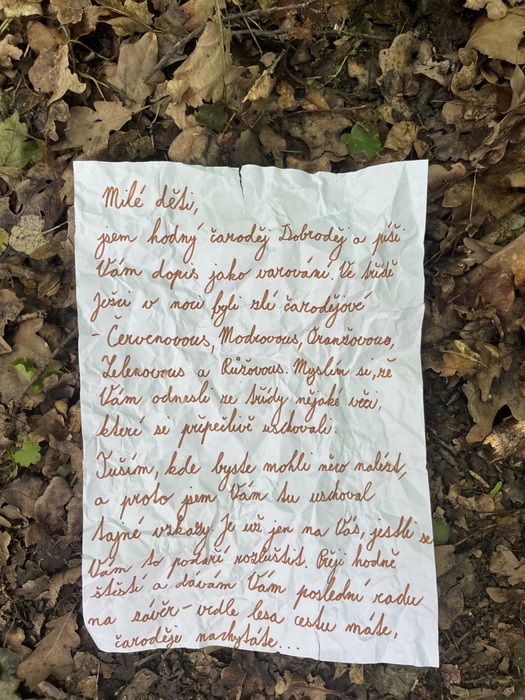 Milé děti,
jsem hodný čaroděj Dobroděj a píši
Vám dopis jako varování. Ve třídě
Ježci v noci byli zlí čarodějové
- Červenovous, Modrovous, Oranžovous,
Zelenovous a Růžovous. Myslím si, že
Vám odnesli ze třídy nějaké věci,
které si přepečlivě uschovali.
Tuším, kde byste mohli něco nalézt,
a proto jsem Vám tu uschoval
tajné vzkazy. Je už jen na Vás, jestli se
Vám to podaří rozluštit. Přeji hodně
štěstí a dávám Vám poslední radu
na závěr - vedle lesa cestu máte,
čaroděje nachytáte...